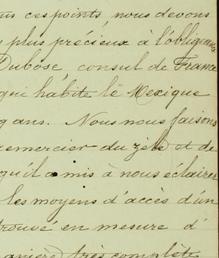 ces points, nous devons
plus précieux à l'oblige
Dubose, consul de France
qui habite le Mexique
ans. Nous nous faisons
remercier du zèle et de
qu'il a mis à nous éclairer
les moyens d'accès d'un
trouvé en mesure d'
très complète